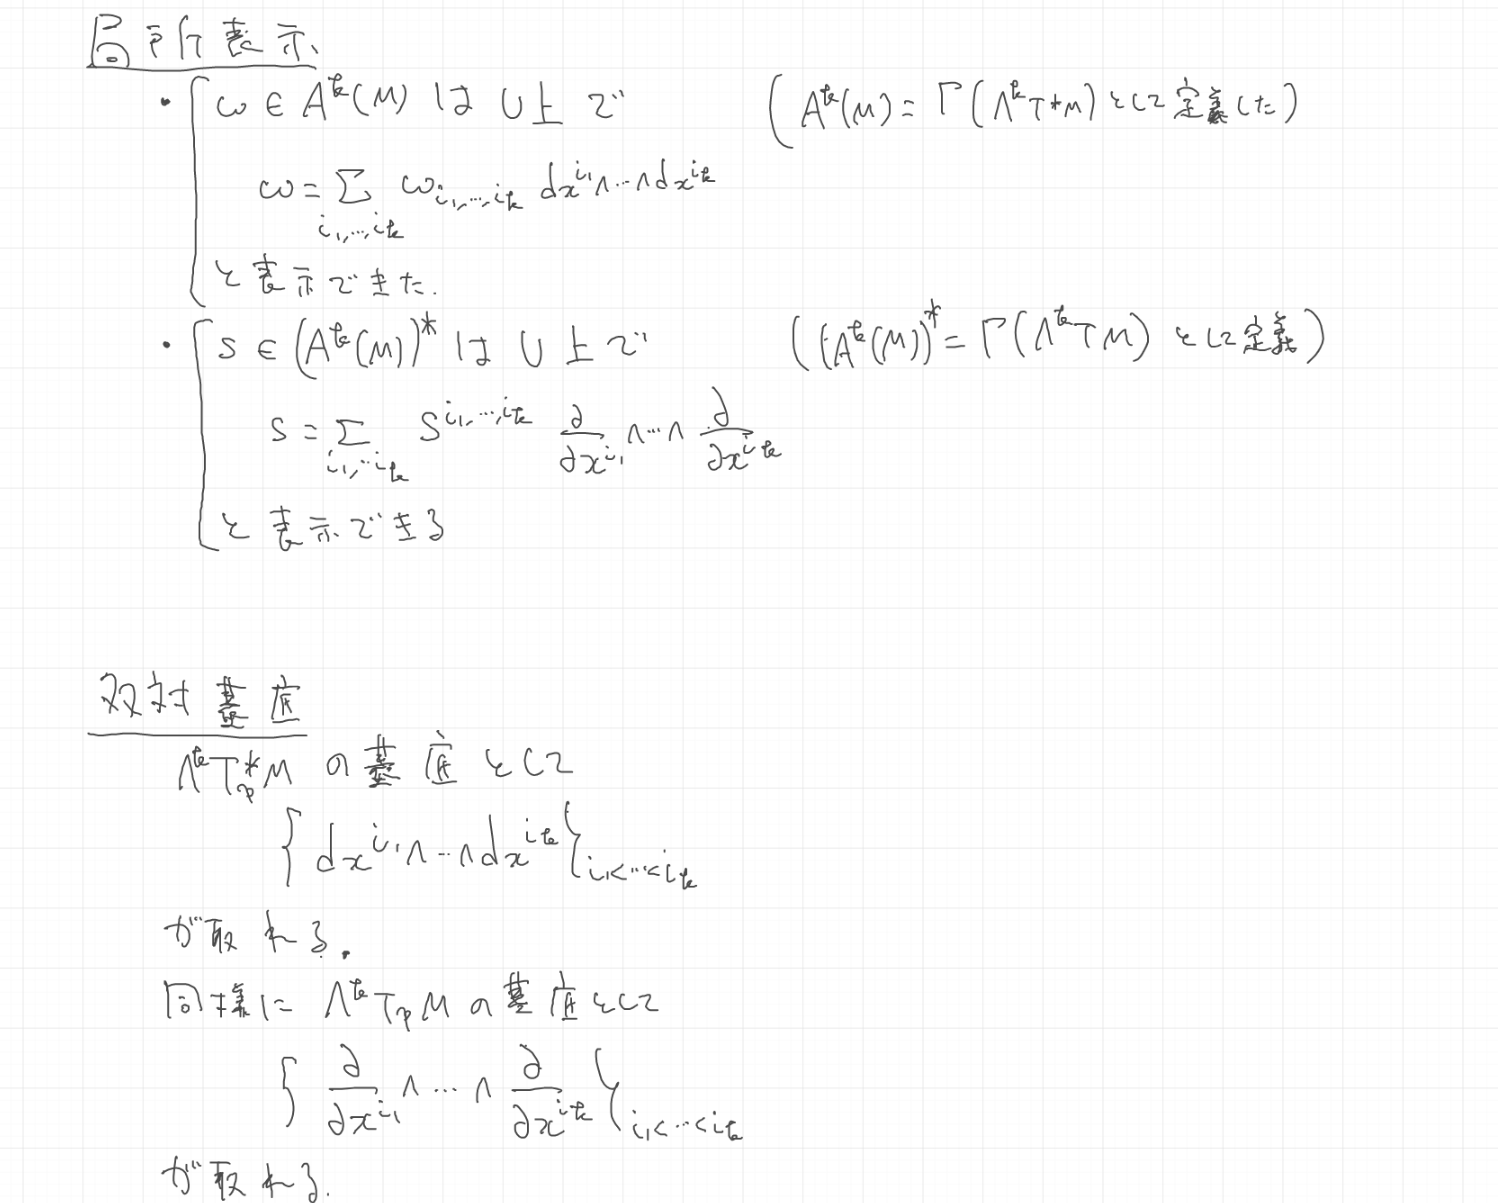 局所表示
・ω ∈ A^k(M) は U上で (A^k(M) = Γ(Λ^k T*M) として定義した)
ω = Σ_{i_1,…,i_k} ω_{i_1,…,i_k} dx^{i_1}∧…∧dx^{i_k}
と表示できた.
・s ∈ (A^k(M))^* は U上で ((A^k(M))^* = Γ(Λ^k TM) として定義)
s = Σ_{i_1,…i_k} s^{i_1,…,i_k} ∂/∂x^{i_1}∧…∧ ∂/∂x^{i_k}
と表示できる
双対基底
Λ^k T_p^*M の基底として
{dx^{i_1}∧…∧dx^{i_k}}_{i_1<…<i_k}
が取れる.
同様に Λ^k T_pM の基底として
{∂/∂x^{i_1}∧…∧ ∂/∂x^{i_k}}_{i_1<…<i_k}
が取れる.